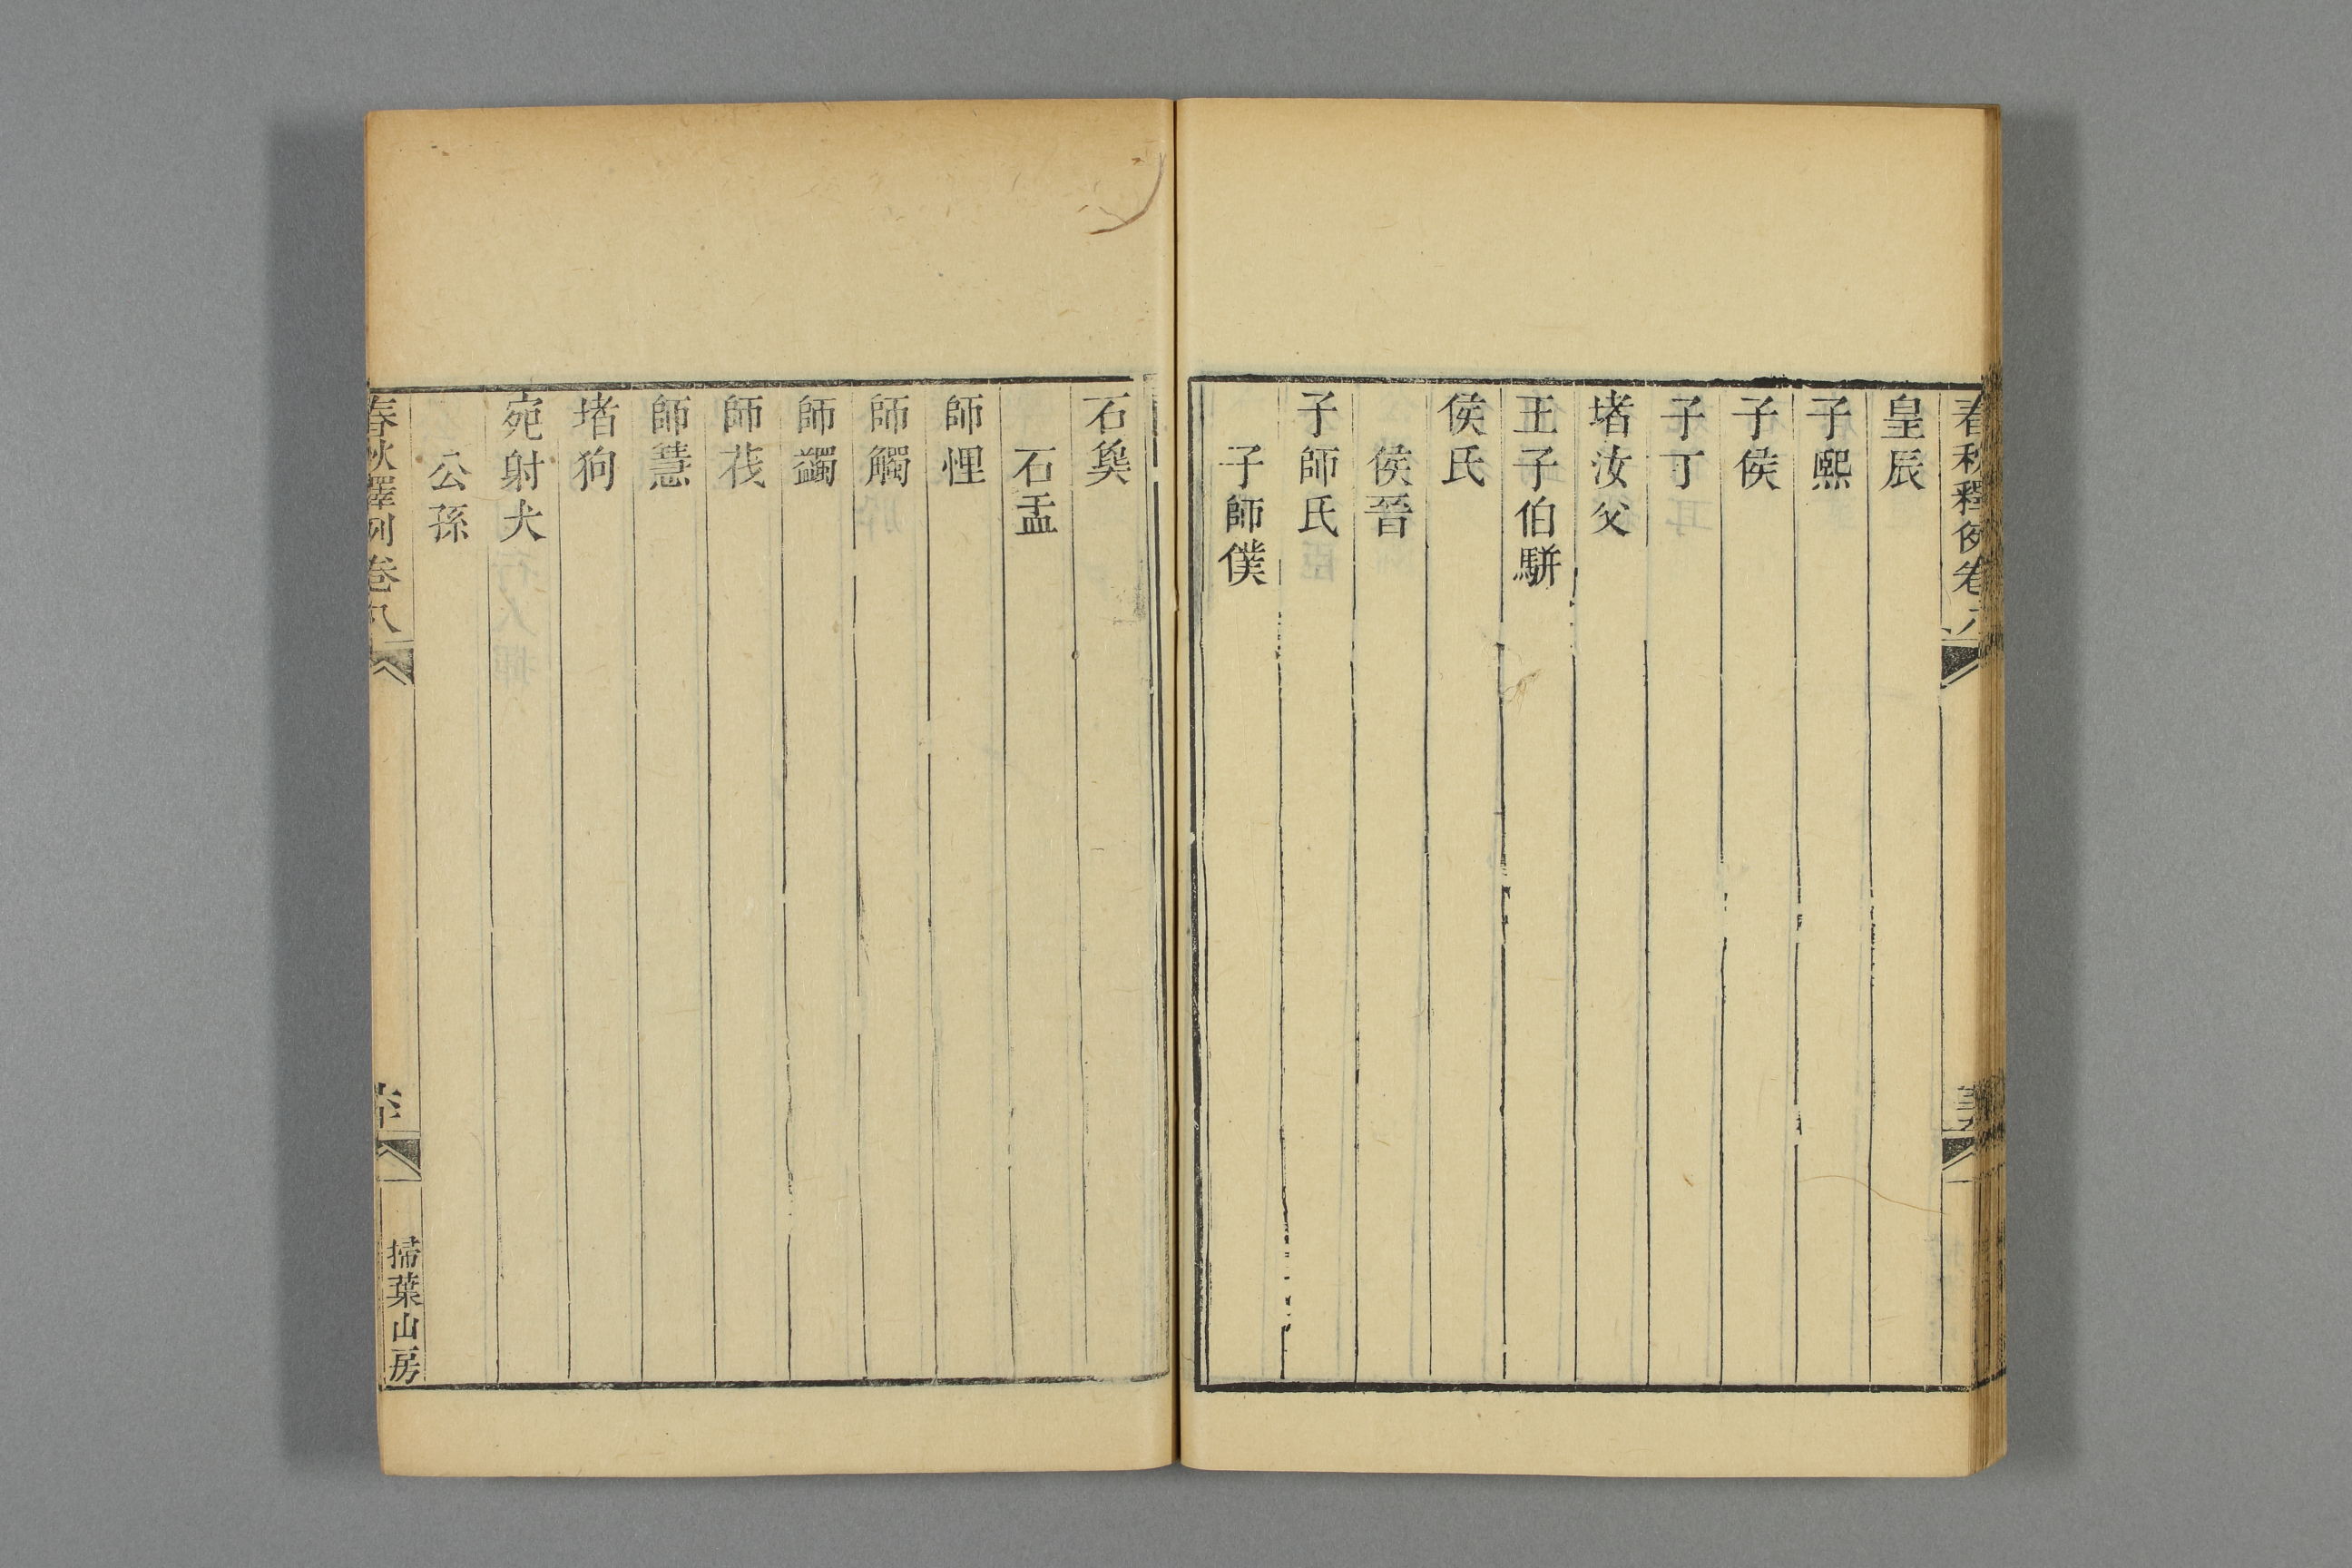 春秋釋例卷八
皇辰
子熙
子侯
子丁
堵汝父
王子伯駢
侯氏
侯晉
子師氏
子師僕
石㚟
石盂
師悝
師觸
師蠲
師茷
師慧
堵狗
宛射犬
公孫
春秋釋例卷八
掃葉山房